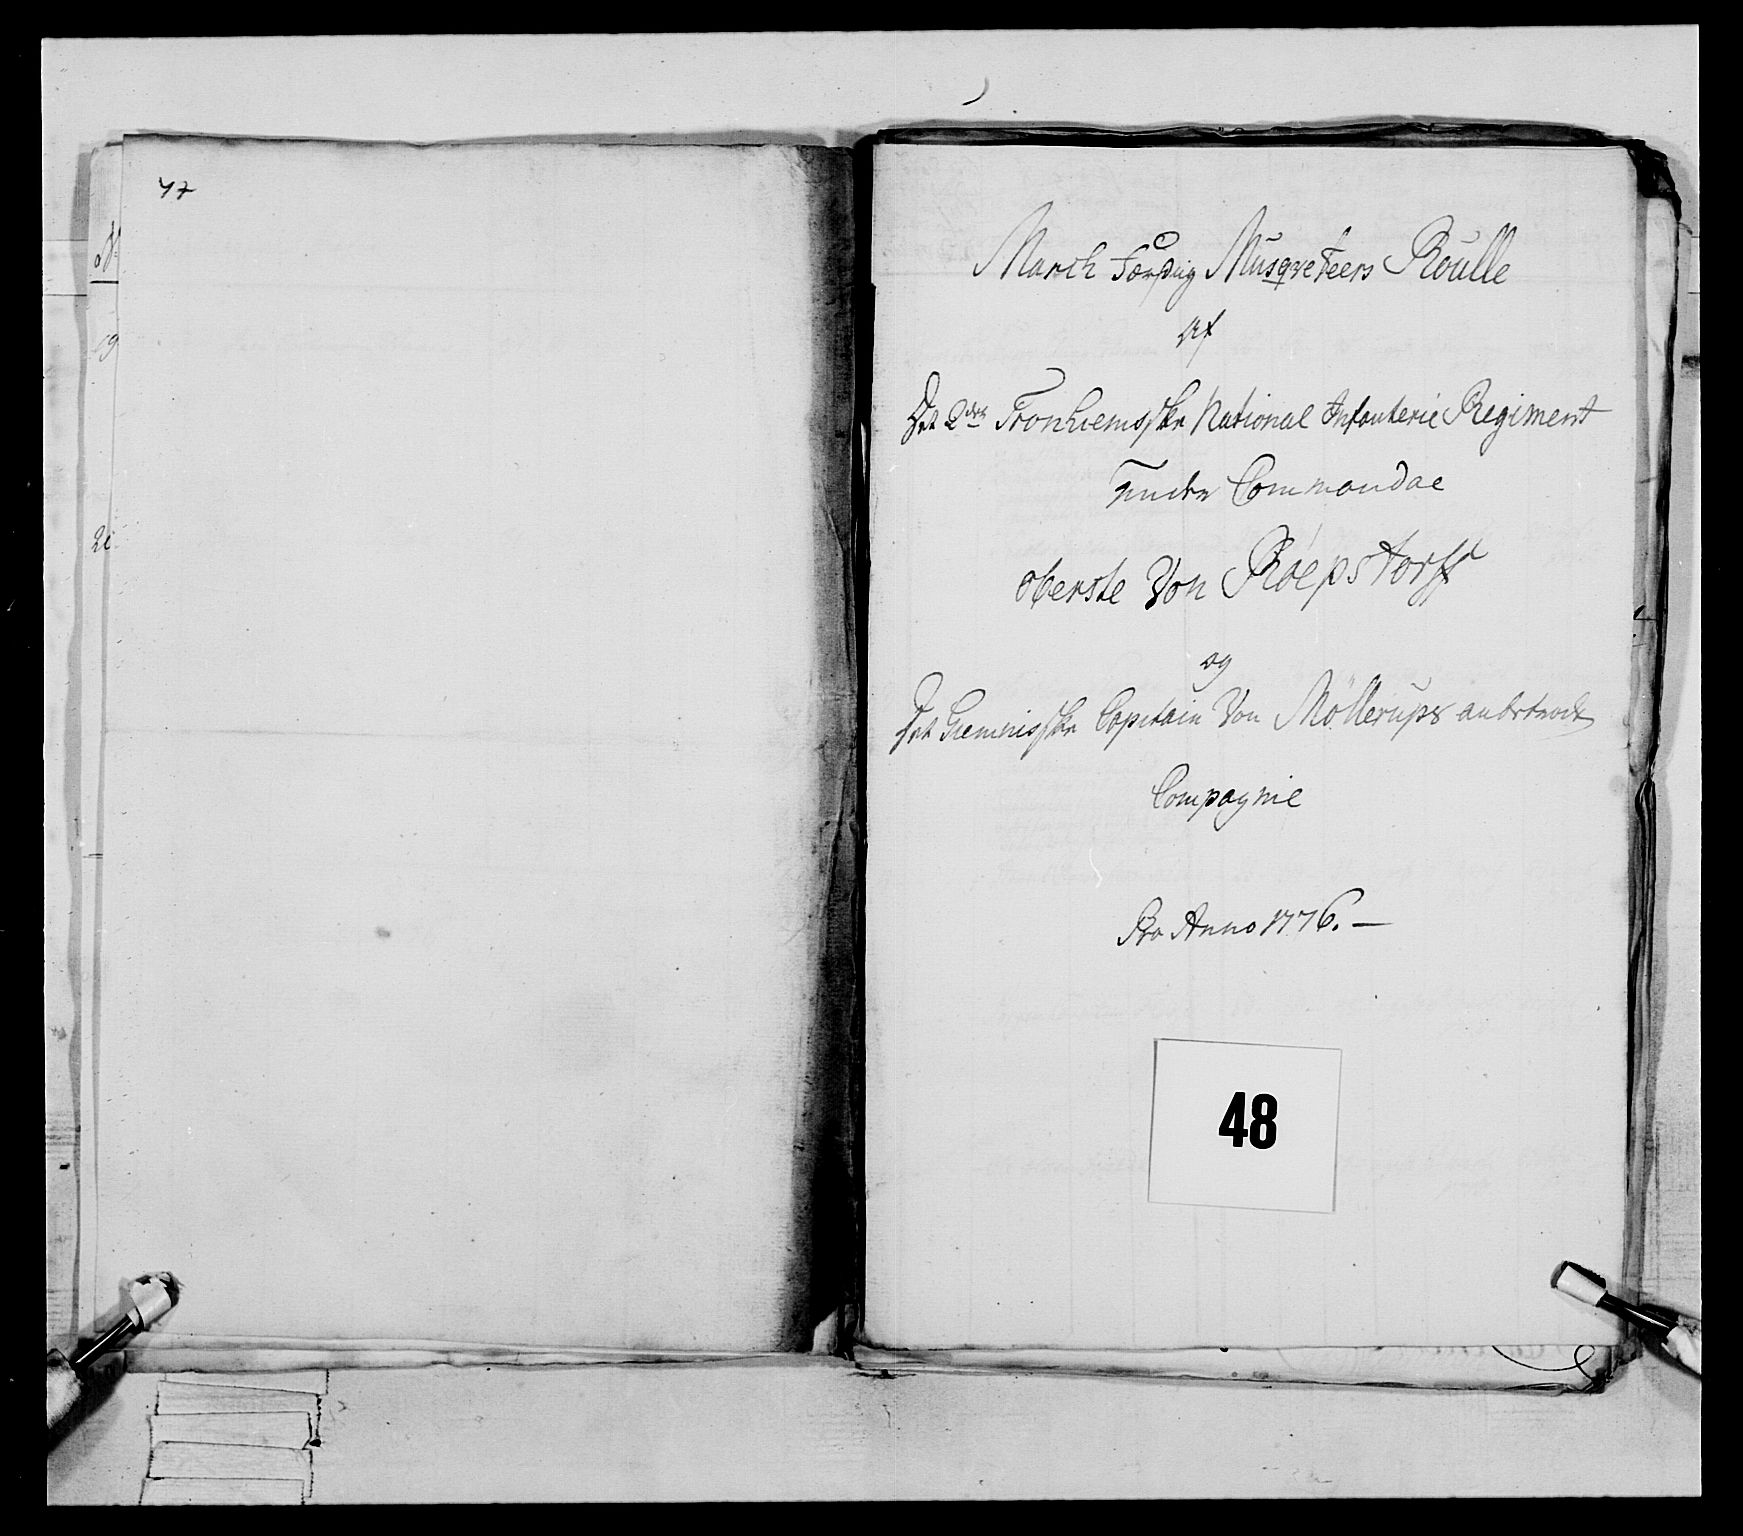 47
March Færdig Musqveteers Roulle
Af
Det 2den Tronhiemsske National Infanterie Regiment
under Commandae
oberste Von Röepstorff
og
Det Giemnisske Capitain Von Möllerups anbetroede
Compagnie
Pro Anno 1776. —
48